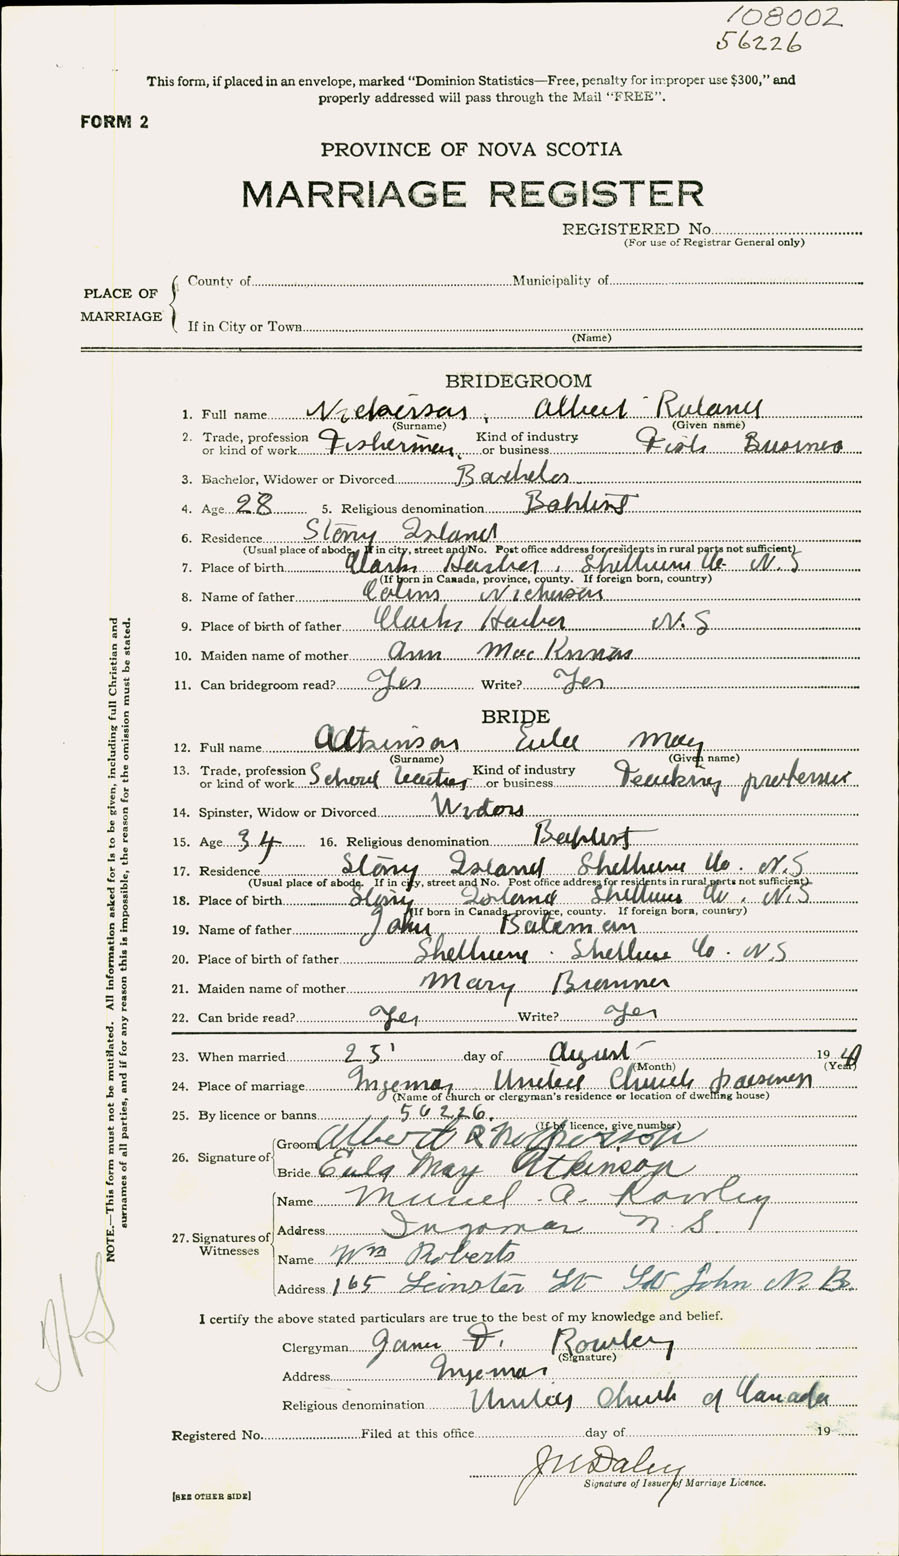 108002
56226
This form, if placed in an envelope, marked "Dominion Statistics—Free, penalty for improper use $300," and
properly addressed will pass through the Mail "FREE".
FORM 2
PROVINCE OF NOVA SCOTIA
MARRIAGE REGISTER
REGISTERED No.
(For use of Registrar General only)
PLACE OF MARRIAGE
County of Municipality of
If in City or Town
(Name)
NOTE.—This form must not be mutilated. All information asked for is to be given, including full Christian and
surnames of all parties, and if for any reason this is impossible, the reason for the omission must be stated.
BRIDEGROOM
1. Full name Nickerson, Albert Roland
(Surname) (Given name)
2. Trade, profession or kind of work Fisherman Kind of industry or business Fish Business
3. Bachelor, Widower or Divorced Bachelor
4. Age 28 5. Religious denomination Baptist
6. Residence Stony Island
(Usual place of abode. If in city, street and No. Post office address for residents in rural parts not sufficient)
7. Place of birth Clarks Harbor, Shelburne Co N.S
(If born in Canada, province, county. If foreign born, country)
8. Name of father Nickerson
9. Place of birth of father Clarks Harbor N.S
10. Maiden name of mother Ann
11. Can bridegroom read? Yes Write? Yes
BRIDE
12. Full name Atkinson Eula May
(Surname) (Given name)
13. Trade, profession or kind of work School teacher Kind of industry or business Teaching profession
14. Spinster, Widow or Divorced Widow
15. Age 34 16. Religious denomination Baptist
17. Residence Stony Island Shelburne Co. N.S
(Usual place of abode. If in city, street and No. Post office address for residents in rural parts not sufficient)
18. Place of birth Stony Island Shelburne Co. N.S
(If born in Canada, province, county. If foreign born, country)
19. Name of father John Bateman
20. Place of birth of father Shelburne. Shelburne Co. N.S
21. Maiden name of mother Mary
22. Can bride read? Yes Write? Yes
23. When married 25 day of August 1940
(Month) (Year)
24. Place of marriage Ingomar United Church parsonage
(Name of church or clergyman's residence or location of dwelling house)
25. By licence or banns 56226.
(If by licence, give number)
26. Signature of Groom Albert R Nickerson
Bride Eula May Atkinson
27. Signatures of Witnesses
Name Muriel A. Rowley
Address Ingomar N.S.
Name Wm Roberts
Address 165 Leinster St St John N.B.
I certify the above stated particulars are true to the best of my knowledge and belief.
Clergyman Rowley
(Signature)
Address Ingomar
Religious denomination United Church of Canada
Registered No. Filed at this office day of 19
Daley
Signature of Issuer of Marriage Licence.
[SEE OTHER SIDE]